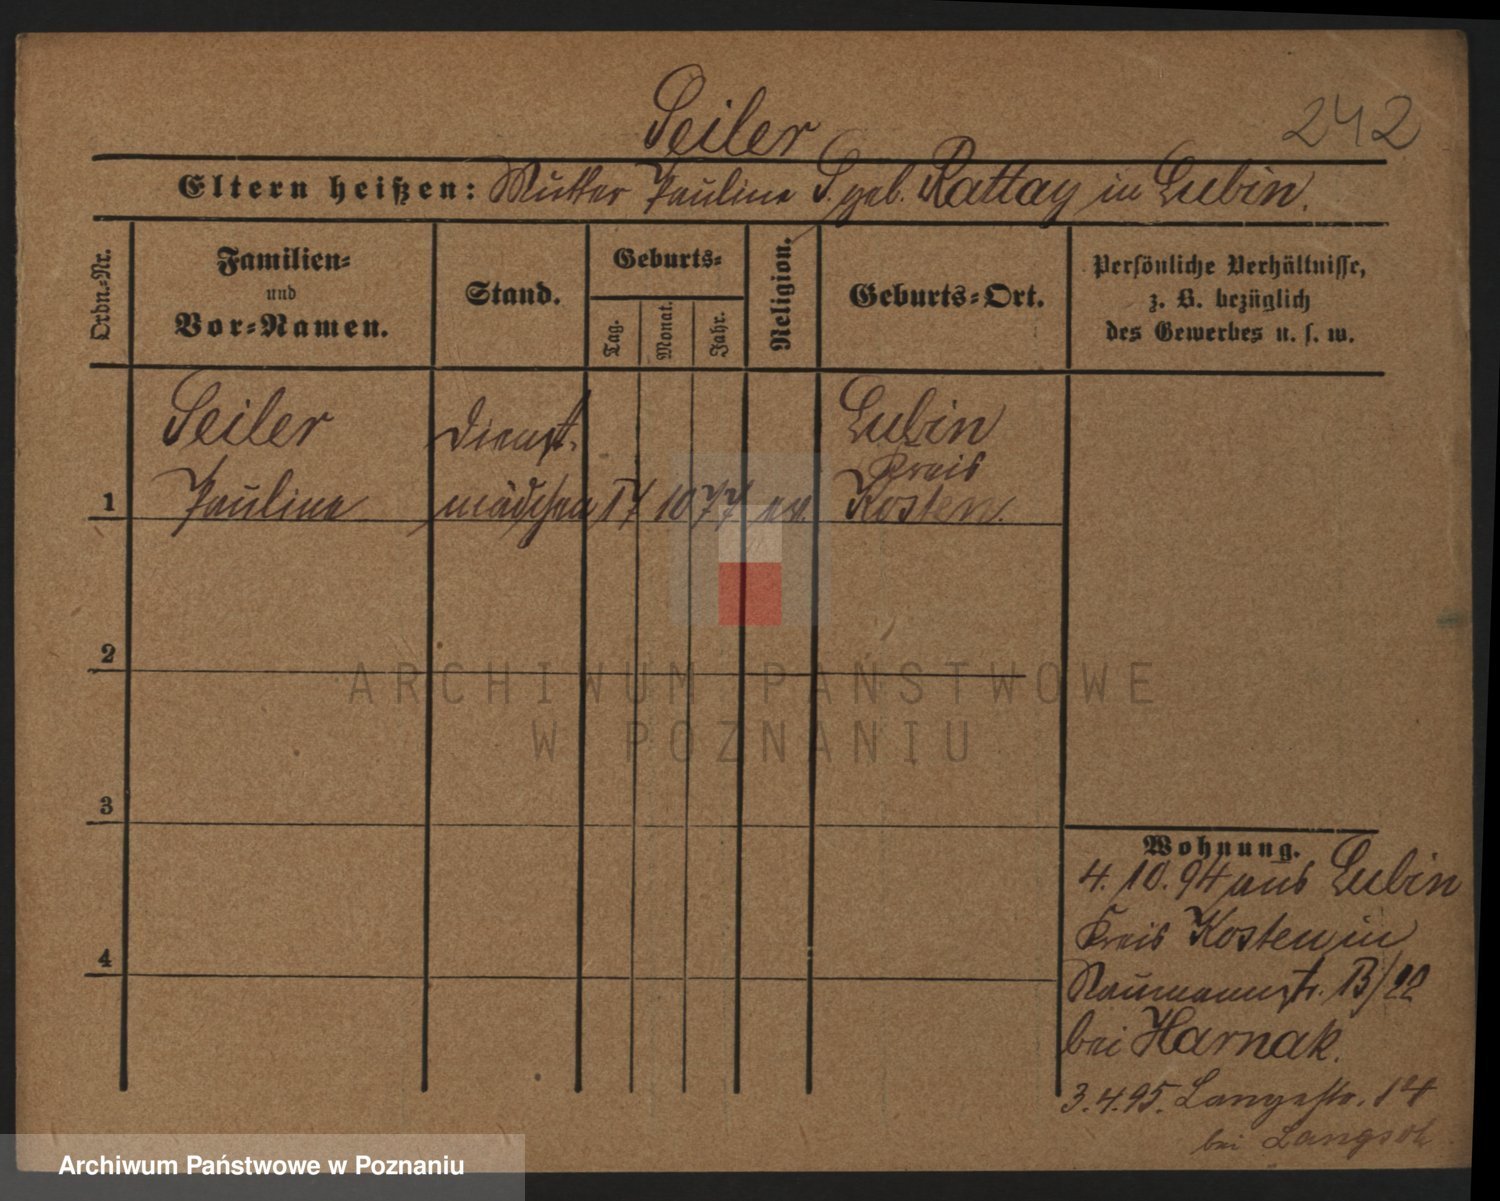 Seiler
242
Eltern heißen: Mutter Pauline S. geb. Rattay in Lubin.
Ordn.-Nr.
Familien-
und
Vor-Namen.
Stand.
Geburts-
Tag.
Monat.
Jahr.
Religion.
Geburts-Ort.
Persönliche Verhältnisse,
z. B. bezüglich
des Gewerbes u. s. w.
Seiler
Dienst-
Lubin
Kreis
1 Pauline mädchen 17 10 77 ev. Kosten.
2
ARCHIWUM PAŃSTWOWE
W POZNANIU
3
Wohnung.
4. 10. 94 aus Lubin
Kreis Kosten in
4
Naumannstr. B/22
bei Harnak.
3.4.95. Langestr. 14
bei
Archiwum Państwowe w Poznaniu